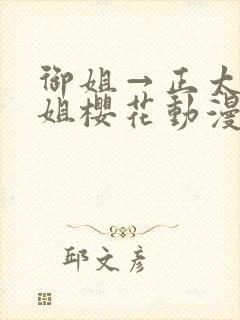 御姐→正太
姐櫻花動漫
邱文彥